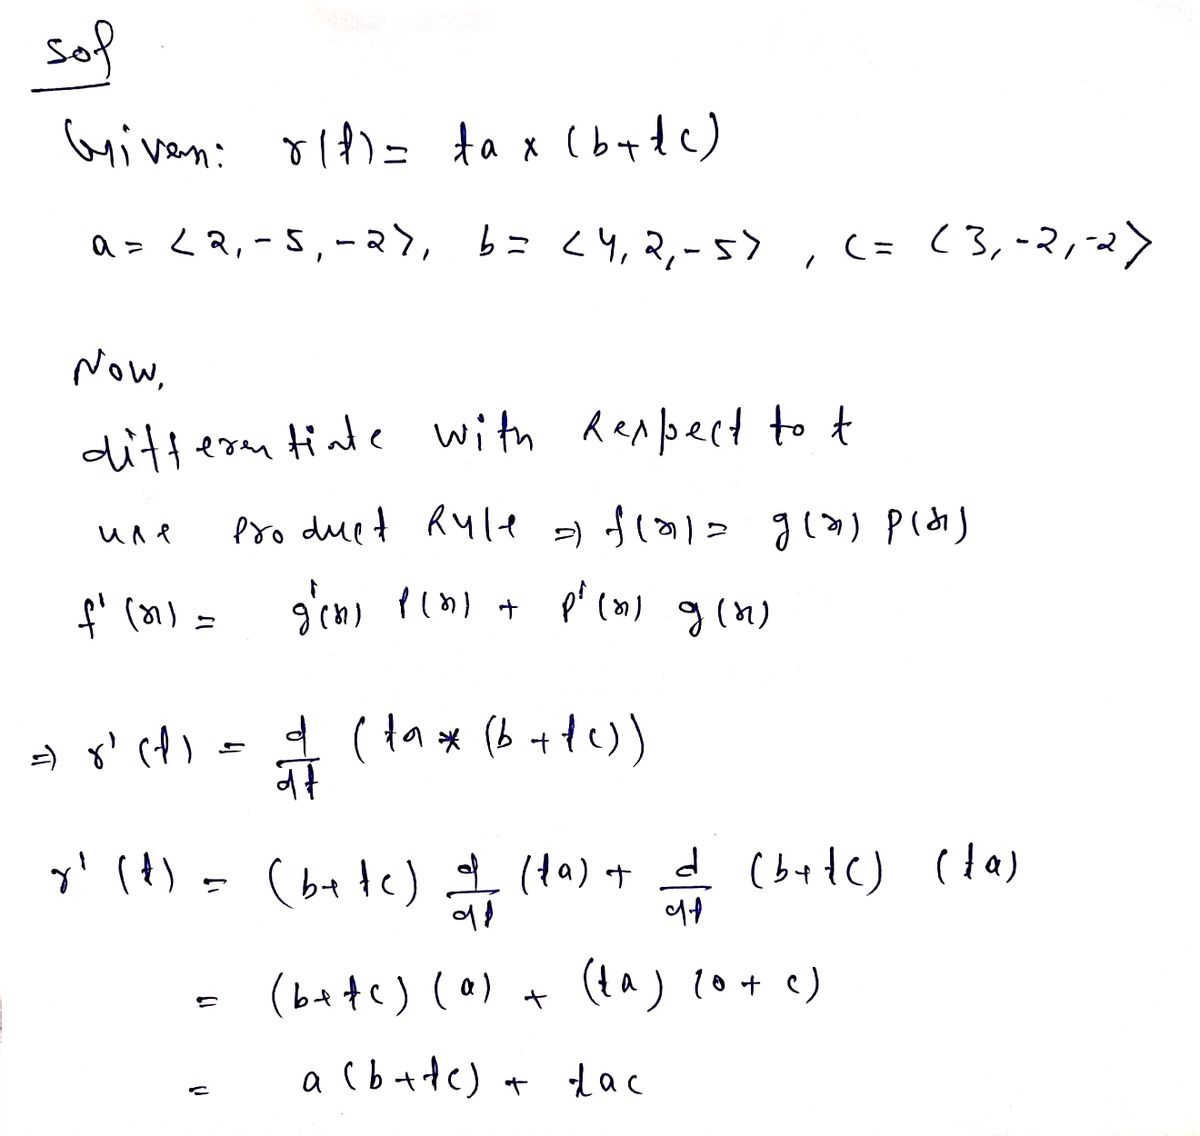 Sol
Given: r(t) = ta × (b+tc)
a = <2,-5,-2>, b = <4,2,-5>, c = <3,-2,-2>
Now,
differentiate with Respect to t
use Product Rule ⇒ f(x) = g(x) P(x)
f'(x) = g'(x) P(x) + P'(x) g(x)
⇒ r'(t) = d/dt (ta * (b+tc))
r'(t) = (b+tc) d/dt (ta) + d/dt (b+tc) (ta)
= (b+tc) (a) + (ta) (0+c)
= a(b+tc) + tac